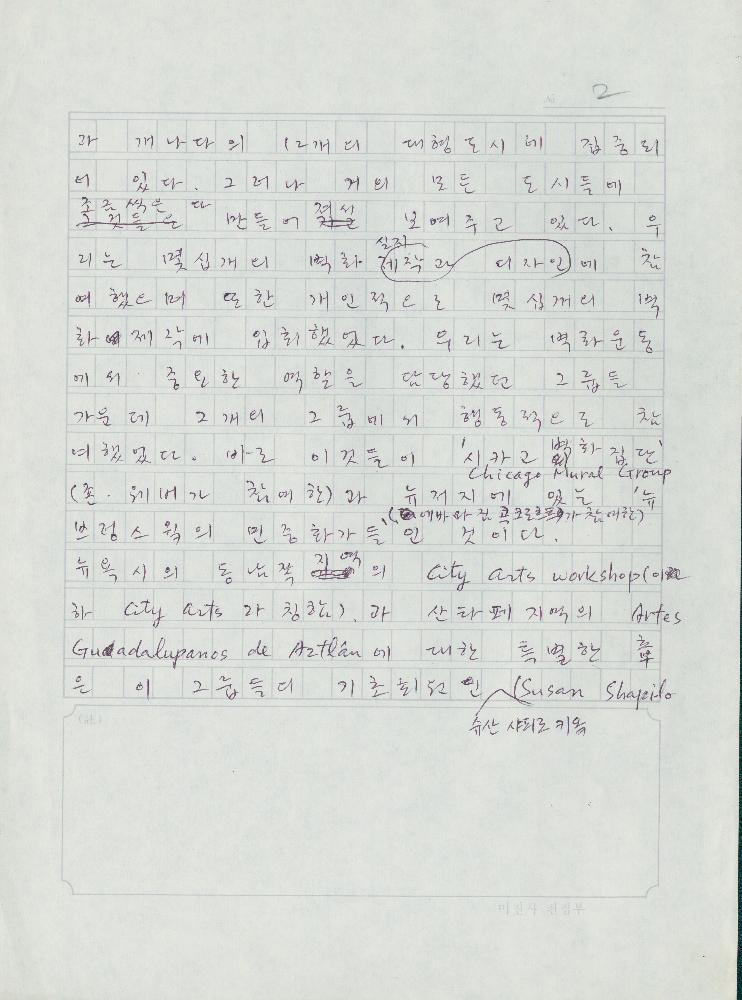 No 2
과 캐나다의 12개의 대형도시에 집중되
어 있다. 그러나 거의 모든 도시들에
조금씩은 다
만들어 보여주고 있다. 우
실제
리는 몇십개의 벽화 제작과 디자인에 참
여했으며 또한 개인적으로 몇십개의 벽
화 제작에 입회했었다. 우리는 벽화운동
에의 중요한 역할을 담당했던 그룹들
가운데 2개의 그룹에서 행동적으로 참
여했었다. 바로 이것들이 '시카고 벽화집단'
Chicago Mural Group
(존·웨버가 참여한)과 뉴저지에 있는 '뉴
(에바와 짐 콕크로프트가 참여한)
브렁스윅의 민중화가들'인 것이다.
뉴욕시의 동남쪽 지역의 City arts workshop(이
하 City arts 라 칭함).과 산타페 지역의 Artes
Guadalupanos de Aztlán에 대한 특별한 章
은 이 그룹들의 기초회원인 (Susan Shapilo
슈산 샤피로 키욕
(註)
미진사 편집부